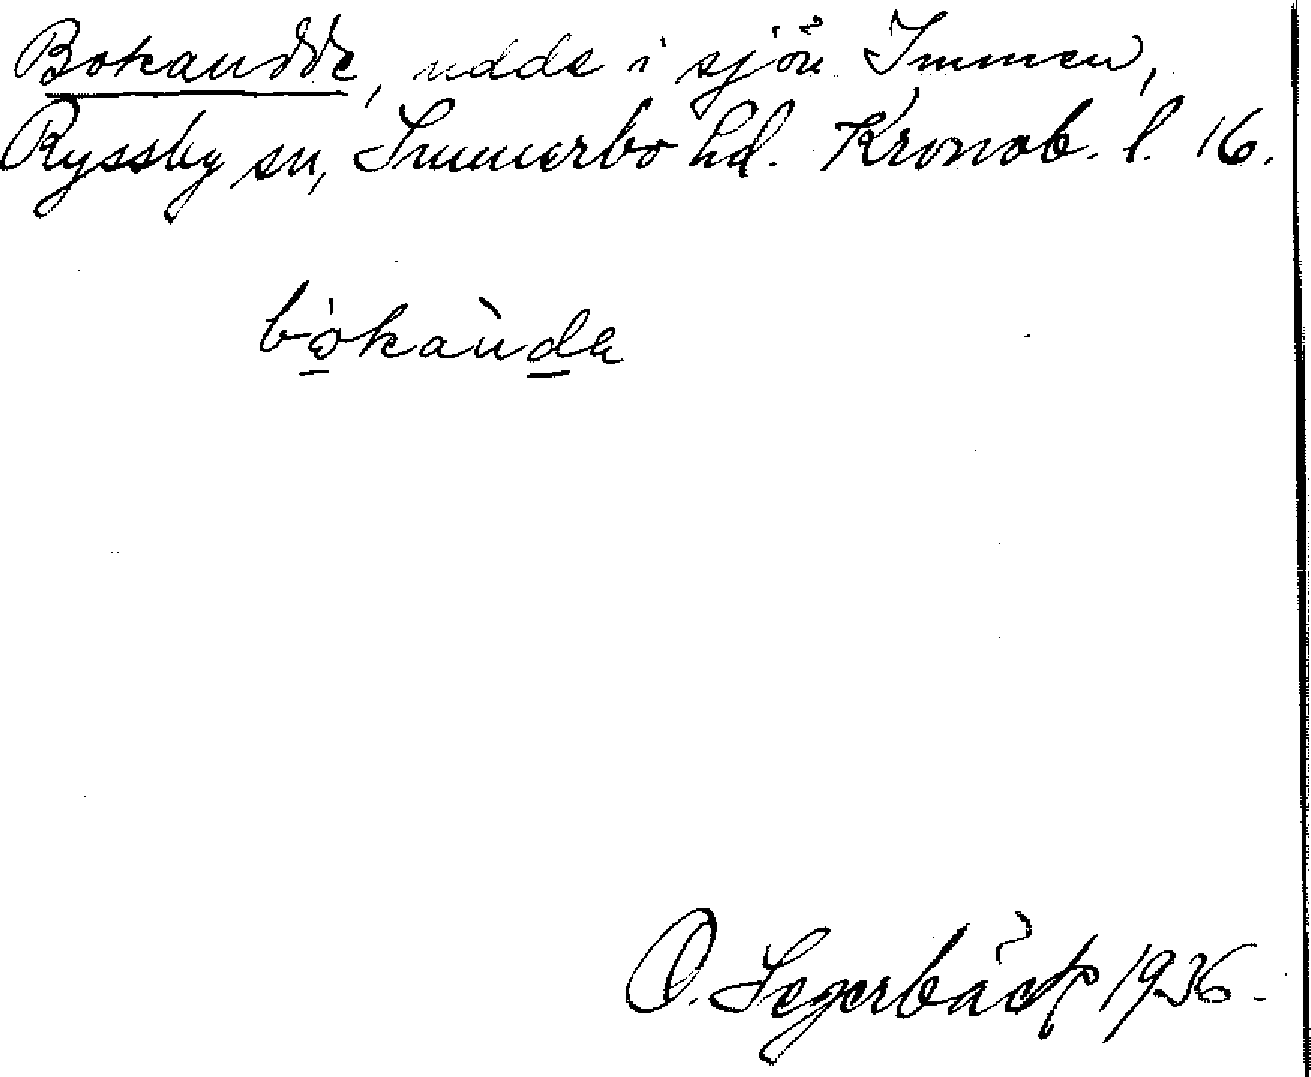 Bokaudde, udde i sjön Immen,
Ryssby sn, Sunnerbo hd. Kronob. l. 16.
bokaùda
O. Segerbäck 1936.